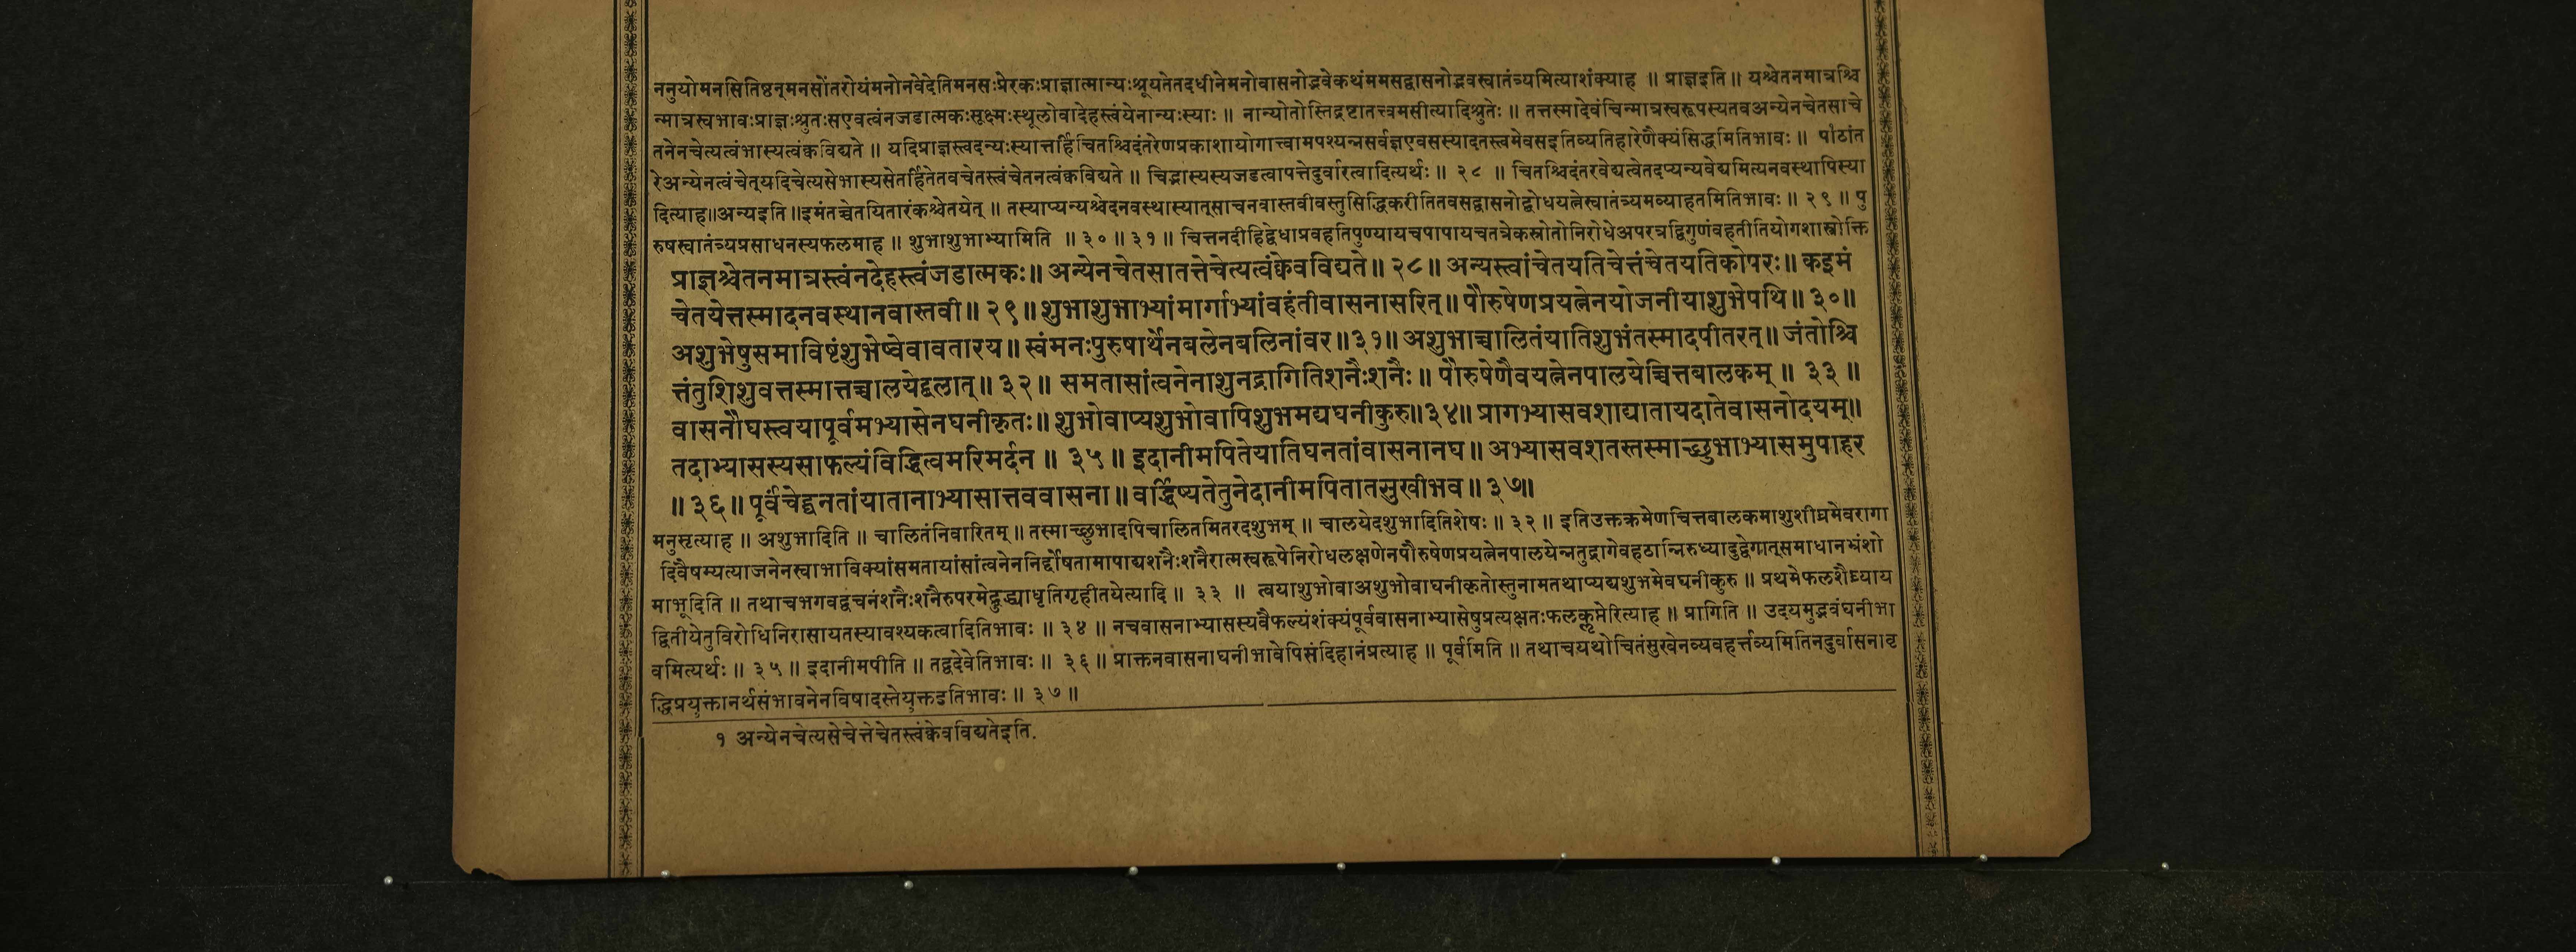 ननुयोमनसितिष्ठन्मनसोंतरोयंमनोनवेदेतिमनसःप्रेरकःप्राज्ञात्मान्यःश्रूयतेतदधीनेमनोवासनोद्भवेकथंममसद्वासनोद्भवस्वातंत्र्यमित्याशंक्याह ॥ प्राज्ञइति ॥ यश्चेतनमात्रश्चि
न्मात्रस्वभावःप्राज्ञःश्रुतःसएवत्वंनजडात्मकःसूक्ष्मःस्थूलोवादेहस्त्वंयेनान्यःस्याः ॥ नान्योतोस्तिद्रष्टातत्त्वमसीत्यादिश्रुतेः ॥ तत्तस्मादेवंचिन्मात्रस्वरूपस्यतवअन्येनचेतसाचे
तनेनचेत्यत्वंभास्यत्वंक्वविद्यते ॥ यदिप्राज्ञस्त्वदन्यःस्यात्तर्हिचितश्चिदंतरेणप्रकाशायोगात्त्वामपश्यन्नसर्वज्ञएवसस्यादतस्त्वमेवसइतिव्यतिहारेणैक्यंसिद्धमितिभावः ॥ पाठांत
रेअन्येनत्वंचेत्यदिचेत्यसेभास्यसेतर्हितेतवचेतस्त्वंचेतनत्वंक्वविद्यते ॥ चिद्भास्यस्यजडत्वापत्तेदुर्वारत्वादित्यर्थः ॥ २८ ॥ चितश्चिदंतरवेद्यत्वेतदप्यन्यवेद्यमित्यनवस्थापिस्या
दित्याह॥अन्यइति॥इमंतच्चेतयितारंकश्चेतयेत् ॥ तस्याप्यन्यश्चेदनवस्थास्यात्साचनवास्तवीवस्तुसिद्धिकरीतितवसद्वासनोद्बोधयत्नेस्वातंत्र्यमव्याहतमितिभावः ॥ २९ ॥ पु
रुषस्वातंत्र्यप्रसाधनस्यफलमाह ॥ शुभाशुभाभ्यामिति ॥ ३० ॥ ३१ ॥ चित्तनदीहिद्वेधाप्रवहतिपुण्यायचपापायचतत्रेकस्रोतोनिरोधेअपरत्रद्विगुणंवहतीतियोगशास्त्रोक्ति
प्राज्ञश्चेतनमात्रस्त्वंनदेहस्त्वंजडात्मकः॥ अन्येनचेतसातत्तेचेत्यत्वंक्वेवविद्यते॥ २८॥ अन्यस्त्वांचेतयतिचेत्तंचेतयतिकोपरः॥ कइमं
चेतयेत्तस्मादनवस्थानवास्तवी॥ २९॥ शुभाशुभाभ्यांमार्गाभ्यांवहंतीवासनासरित्॥ पौरुषेणप्रयत्नेनयोजनीयाशुभेपथि॥ ३०॥
अशुभेषुसमाविष्टंशुभेष्वेवावतारय॥ स्वंमनःपुरुषार्थेनबलेनबलिनांवर॥३१॥ अशुभाच्चालितंयातिशुभंतस्मादपीतरत्॥ जंतोश्चि
त्तंतुशिशुवत्तस्मात्तच्चालयेद्बलात्॥ ३२॥ समतासांत्वनेनाशुनद्रागितिशनैःशनैः॥ पौरुषेणैवयत्नेनपालयेच्चित्तबालकम्॥ ३३॥
वासनौघस्त्वयापूर्वमभ्यासेनघनीकृतः॥ शुभोवाप्यशुभोवापिशुभमद्यघनीकुरु॥३४॥ प्रागभ्यासवशाद्यातायदातेवासनोदयम्॥
तदाभ्यासस्यसाफल्यंविद्धित्वमरिमर्दन॥ ३५॥ इदानीमपितेयातिघनतांवासनानघ॥ अभ्यासवशतस्तस्माच्छुभाभ्यासमुपाहर
॥ ३६॥ पूर्वंचेद्घनतांयातानाभ्यासात्तववासना॥ वर्द्धिष्यतेतुनेदानीमपितातसुखीभव॥ ३७॥
मनुसृत्याह ॥ अशुभादिति ॥ चालितंनिवारितम् ॥ तस्माच्छुभादपिचालितमितरदशुभम् ॥ चालयेदशुभादितिशेषः ॥ ३२ ॥ इतिउक्तक्रमेणचित्तबालकमाशुशीघ्रमेवरागा
दिवैषम्यत्याजनेनस्वाभाविक्यांसमतायांसांत्वनेननिर्द्दोषतामापाद्यशनैःशनैरात्मस्वरूपेनिरोधलक्षणेनपौरुषेणप्रयत्नेनपालयेन्नतुद्रागेवहठान्निरुध्यादुद्वेगात्समाधानभ्रंशो
माभूदिति ॥ तथाचभगवद्वचनंशनैःशनैरुपरमेद्बुद्ध्याधृतिगृहीतयेत्यादि ॥ ३३ ॥ त्वयाशुभोवाअशुभोवाघनीकृतोस्तुनामतथाप्यद्यशुभमेवघनीकुरु ॥ प्रथमेफलशैघ्र्याय
द्वितीयेतुविरोधिनिरासायतस्यावश्यकत्वादितिभावः ॥ ३४ ॥ नचवासनाभ्यासस्यवैफल्यंशंक्यंपूर्ववासनाभ्यासेषुप्रत्यक्षतःफलकॢप्तेरित्याह ॥ प्रागिति ॥ उदयमुद्भवंघनीभा
वमित्यर्थः ॥ ३५ ॥ इदानीमपीति ॥ तद्वदेवेतिभावः ॥ ३६ ॥ प्राक्तनवासनाघनीभावेपिसंदिहानंप्रत्याह ॥ पूर्वमिति ॥ तथाचयथोचितंसुखेनव्यवहर्त्तव्यमितिनदुर्वासनावृ
द्धिप्रयुक्तानर्थसंभावनेनविषादस्तेयुक्तइतिभावः ॥ ३७ ॥
१ अन्येनचेत्यसेचेत्तेचेतस्त्वंक्वेवविद्यतेइति.